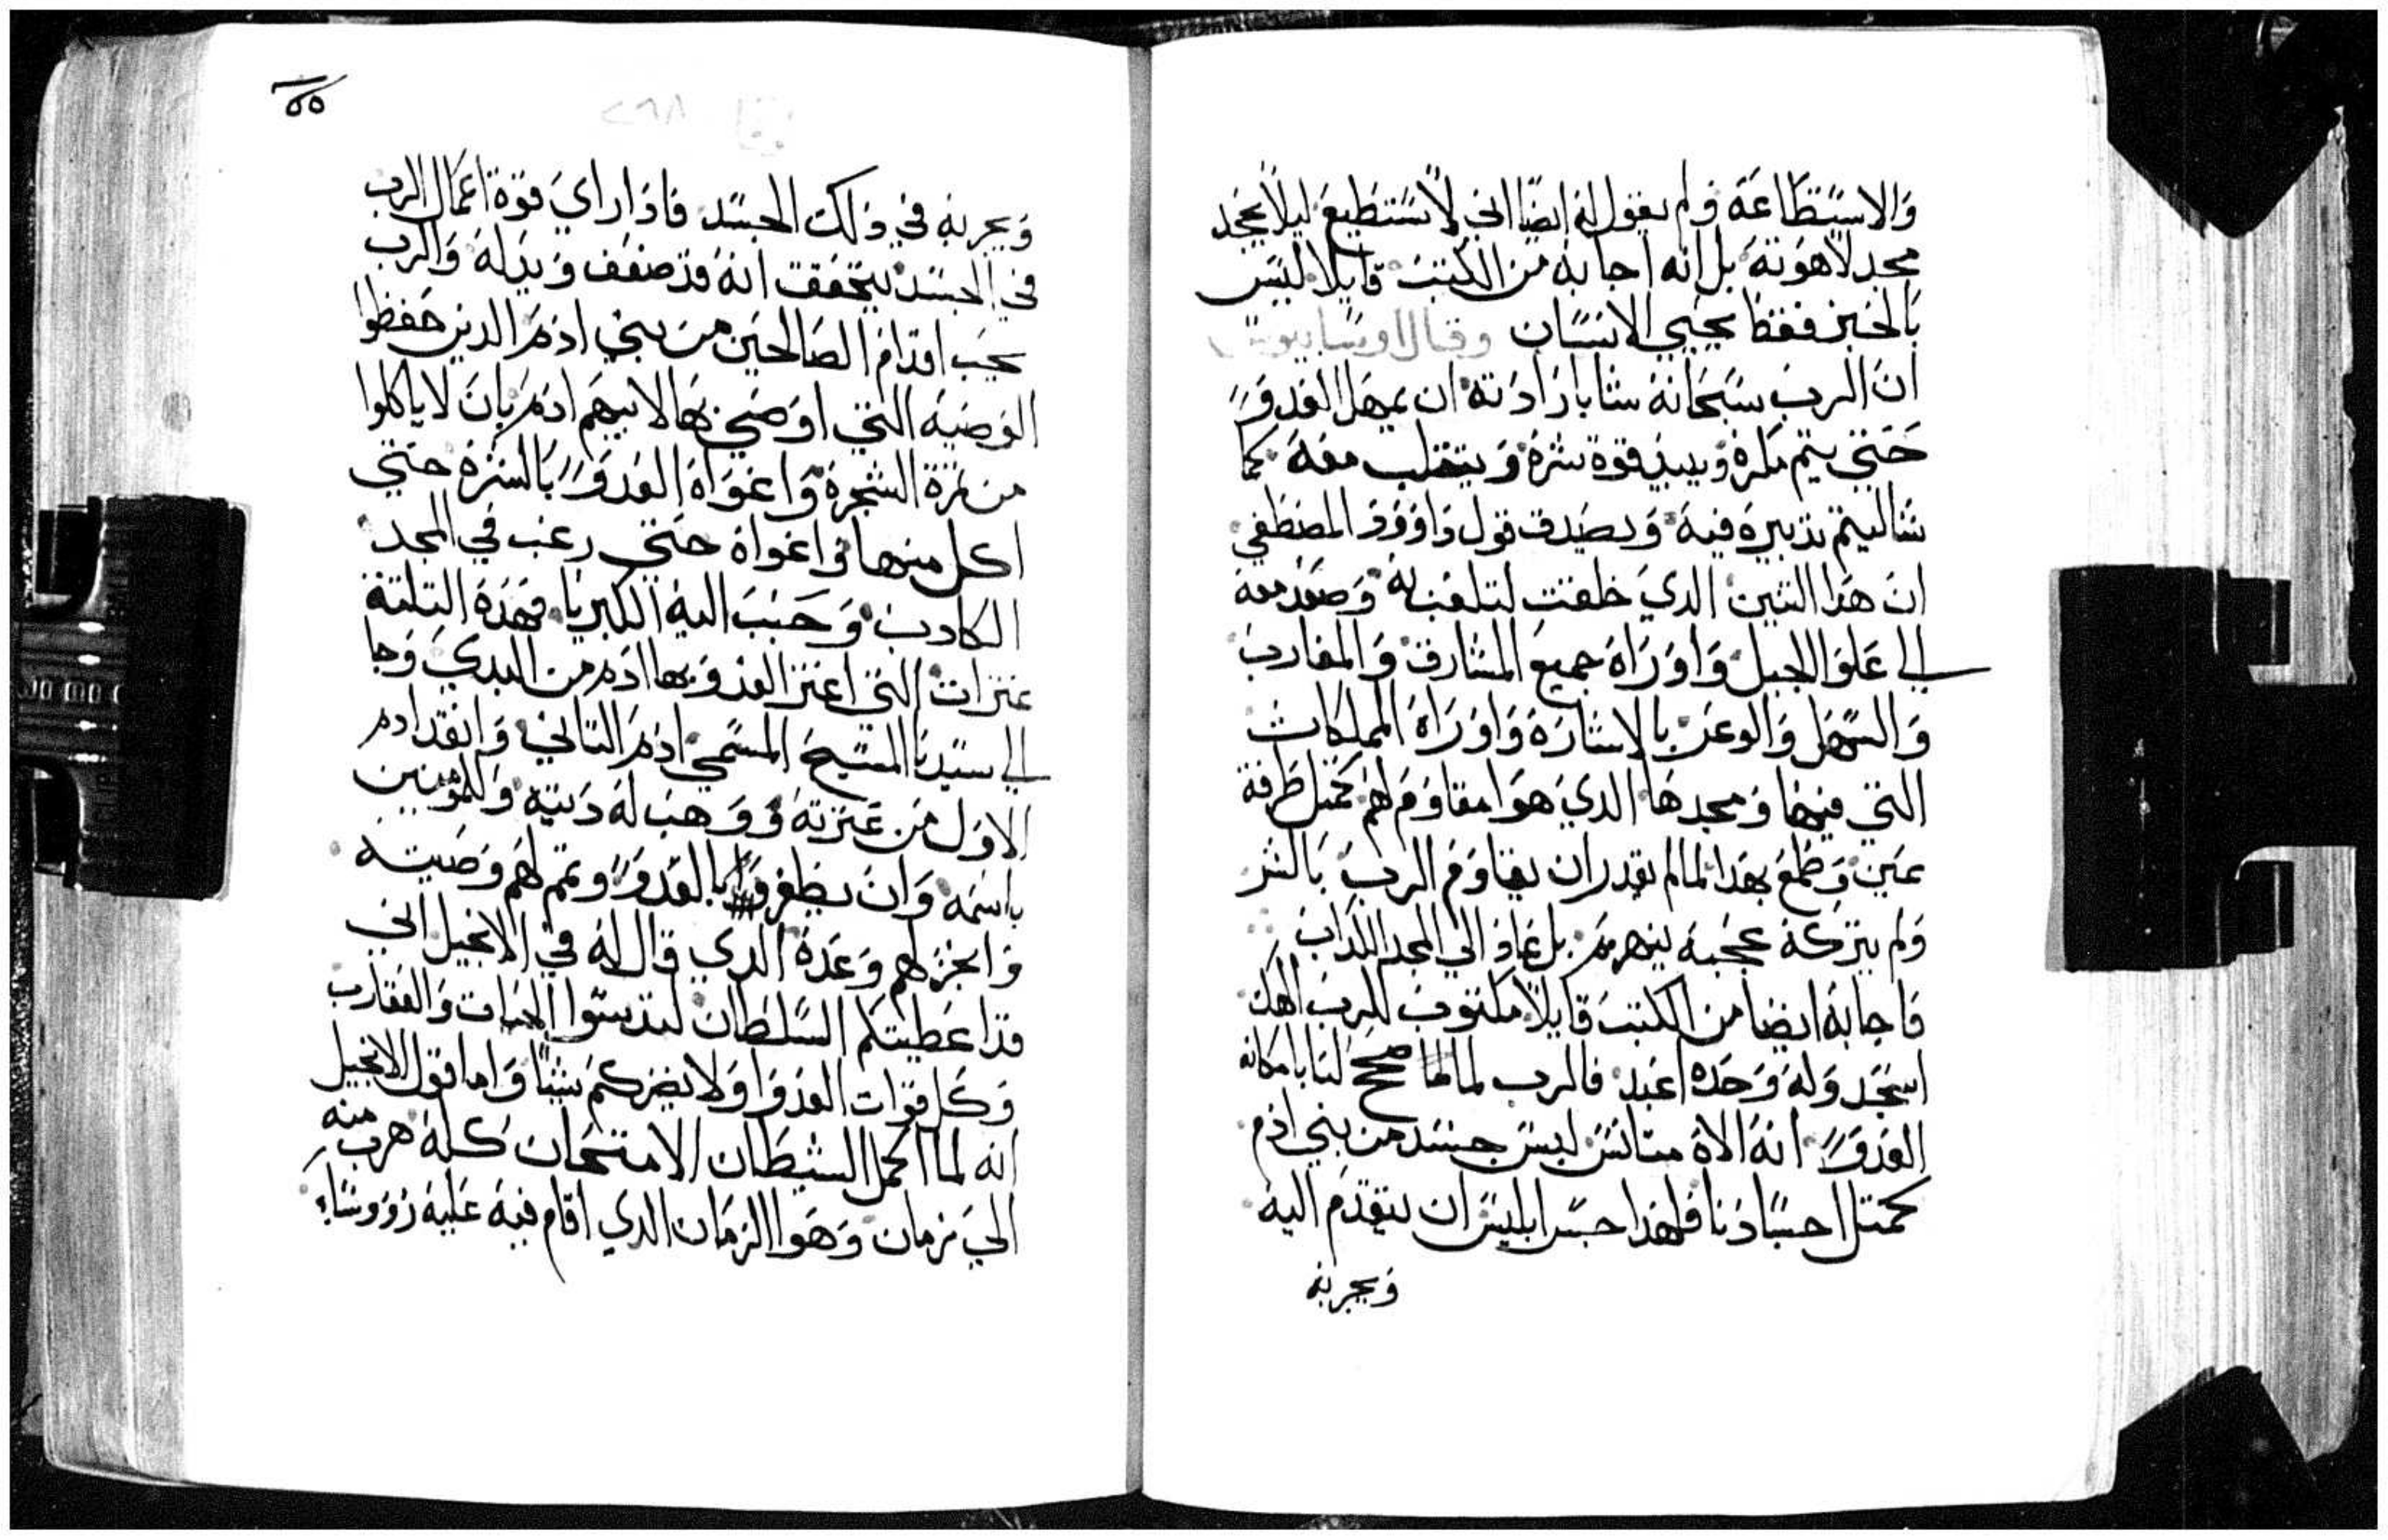 والاستطاعة ولم يقول له ايضا اني لا نستطيع ليلا يجحد
مجد لاهوته بل انه اجابه من الكتب قايلا ليس
بالخبز فقط يحيي الانسان وقال اوسابيوس
ان الرب سبحانه شا بارادته ان يمهل العدو
حتي يتم مكره ويبيد قوة شره ويتقلب معه كما
شا ليتم تدبيره فيه ويصدق قول داوود المصطفي
ان هدا التنين الدي خلقت لتلعب به وصعد معه
الي علو الجبل واوراه جميع المشارق والمغارب
والسهل والوعر بالاشارة واوراه المملكات
التي فيها ومجدها الدي هوا مقاوم لهم كمتل طرفة
عين وطمع بهدا لما لم يقدر ان يقاوم الرب بالشر
ولم يتركه عجبه ينهرم بل عاد الي المجد الكداب
فاجابه ايضا من الكتب قايلا مكتوب للرب الهك
اسجد وله وحده اعبد فالرب لما لها صحح لنا بامكانه
العدو انه الاه متانس لبس جسد من بني ادم
كمتل احسادنا فلهدا جسر ابليس ان يتقدم اليه
ويجربه
٥٥
ويجربه في دلك الجسد فادا راي قوة اعمال الرب
في الجسد يتحقق انه قد ضعف ويدله والرب
تحب اقدام الصالحين من بني ادم الدين حفظوا
الوصيه التي اوصي بها لابيهم ادم بان لا ياكلوا
من تمرة الشجرة واغواه العدو بالشره حتي
اكل منها واغواه حتي رغب في المجد
الكادب وحبب اليه الكبريا فهده التلتة
عترات التي اعتر العدو بها ادم من البدي وجا
الي سيدنا المسيح المسمي ادم التاني وانقد ادم
الاول من عترته ووهب له دىته وللمومنين
باسمه وان يظفروا بالعدو وتمم لهم وصيته
وانجز لهم وعده الدي قال له في الانجيل اني
قد اعطيتكم السلطان لتدوسوا الحيات والعقارب
وكل قوات العدوا ولا يضركم شيا واما قول الانجيل
انه لما اكمل الشيطان الامتحان كله هرب منه
الي زمان وهوا الزمان الدي اقام فيه عليه رووساء